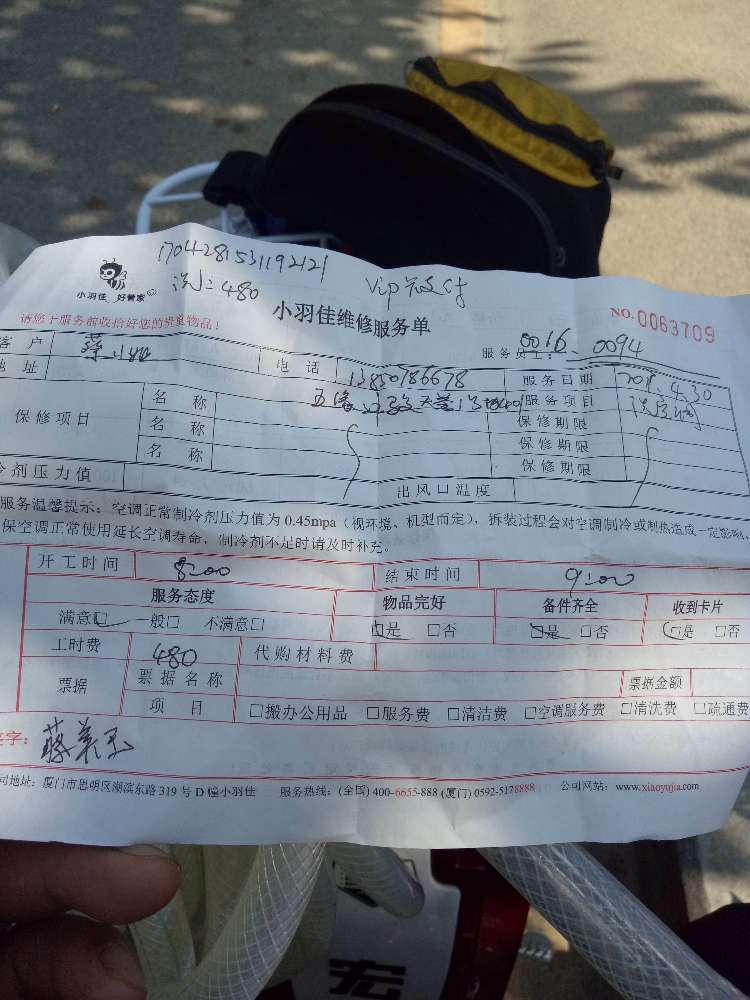 1704281531192121
洗:480 Vip卡支付
小羽佳 好管家
小羽佳维修服务单
NO.0063709
请您于服务前收拾好您的贵重物品!
服务员工: 0016、0094
客户 蔡小姐 电话 13850786678 服务日期 4.30
地址 服务项目
保修项目 名称 保修期限
名称 保修期限
名称 保修期限
冷剂压力值 出风口温度
服务温馨提示:空调正常制冷剂压力值为 0.45mpa(视环境、机型而定),拆装过程会对空调制冷或制热造成一定影响,
保空调正常使用延长空调寿命,制冷剂不足时请及时补充。
开工时间 8:00 结束时间 9:00
服务态度 物品完好 备件齐全 收到卡片
满意☑ 一般□ 不满意□ ☑是 □否 ☑是 □否 ☑是 □否
工时费 480 代购材料费
票据 票据名称 票据金额
项目 □搬办公用品 □服务费 □清洁费 □空调服务费 □清洗费 □疏通费
签字:
司地址:厦门市思明区湖滨东路 319 号 D 幢小羽佳 服务热线:(全国) 400-6655-888 (厦门) 0592-5178888 公司网站:www.xiaoyujia.com
宏